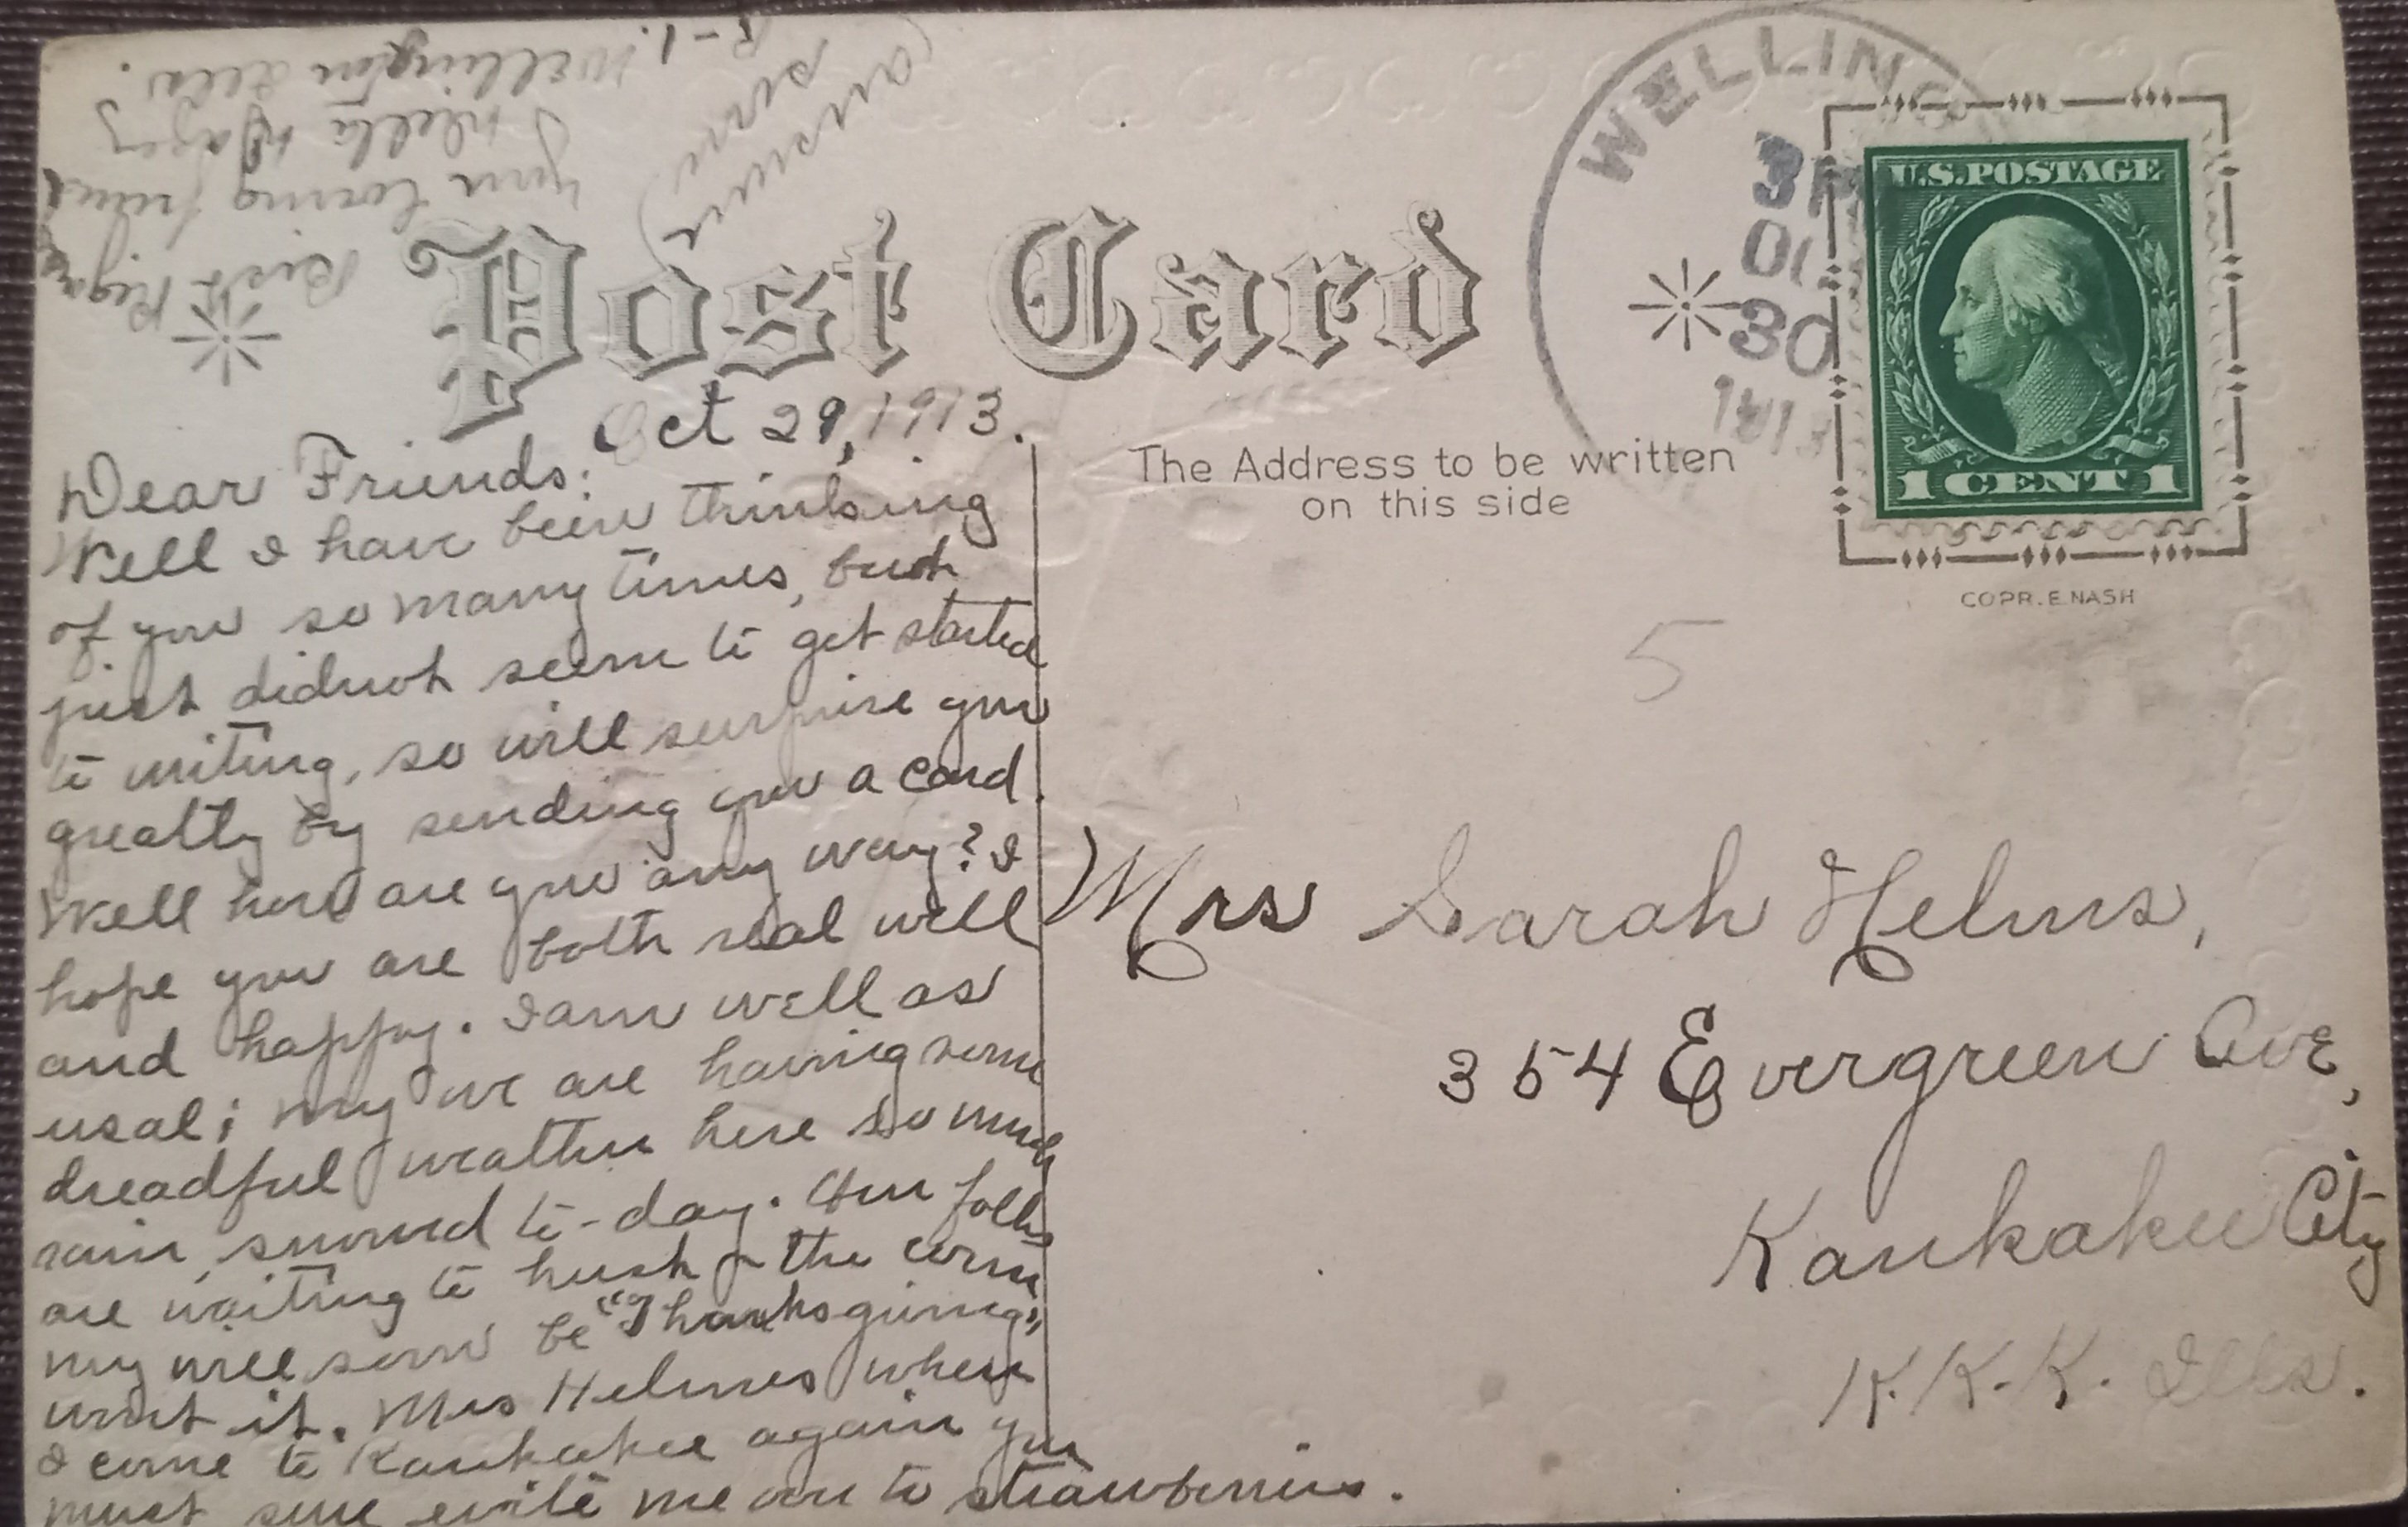 Post Card
WELLING
3P
OC
30
191
U.S. POSTAGE
1 CENT 1
COPR. E. NASH
The Address to be written
on this side
5
Oct 29, 1913.
Dear Friends:
Well I have been thinking
of you so many times, but
just didnot seem to get started
to writing, so will surprise you
greatly by sending you a card.
Well how are you any way? I
hope you are both real well
and happy. I am well as
usal; my we are having some
dreadful weather here so much
rain, snowed to-day. Our folks
are waiting to husk the corn
my will soon be "Thanksgiving"
wont it. Mrs Helmes when
I come to Kankakee again you
must sure evite me over to strawberries.
(ansure
sure)
Best Regards
your loving friend
Stella
R-1. Wellington Ills.
Mrs Sarah Helms,
354 Evergreen Ave,
Kankakee City
K.K.K. Ills.